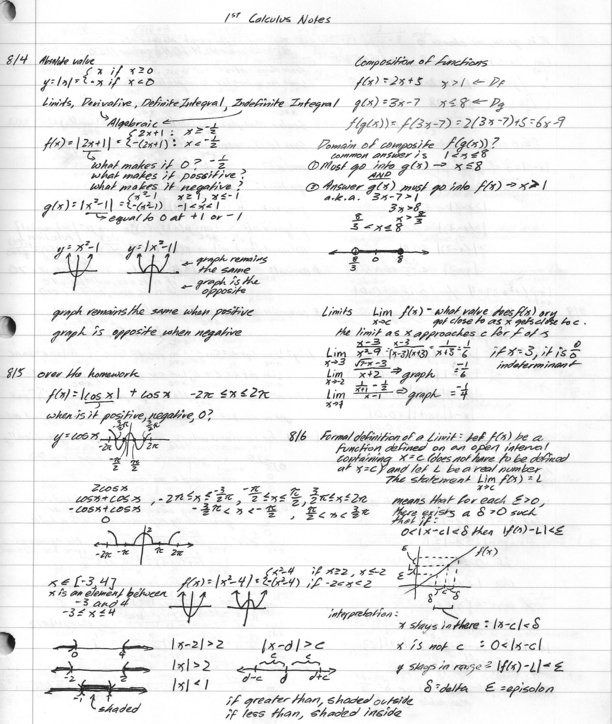 1ST Calculus Notes
8/4 Absolute value
y=|x|={x if x≥0
{-x if x<0
Limits, Derivative, Definite Integral, Indefinite Integral
Algebraic
f(x)=|2x+1|={2x+1; x≥-1/2
{-(2x+1); x<-1/2
what makes it 0? -1/2
what makes it possitive?
what makes it negative?
g(x)=|x²-1|={x²-1 x≥1, x≤-1
{-(x²-1) -1<x<1
equal to 0 at +1 or -1
y=x²-1 y=|x²-1|
graph remains
the same
graph is the
opposite
graph remains the same when positive
graph is opposite when negative
8/5 over the homework
f(x)=|cos x| + cos x -2π≤x≤2π
when is it positive, negative, 0?
y=cos x
-3/2π 3/2π
-π/2 π/2
2cosx
cosx+cosx, -2π≤x≤-3/2π, -π/2≤x≤π/2, 3/2π≤x≤2π
-cosx+cosx -3/2π<x<-π/2, π/2<x<3/2π
0
2
-2π -π π 2π
x∈[-3,4]
x is an element between
-3 and 4
-3≤x≤4
f(x)=|x²-4|={x²-4 if x≥2, x≤-2
{-(x²-4) if -2<x<2
0 4 |x-2|>2
-2 2 |x|>2
-1 1 |x|<1
shaded
|x-d|>c
c c
d-c d d+c
if greater than, shaded outside
if less than, shaded inside
Composition of functions
f(x)=2x+5 x>1 ← Df
g(x)=3x-7 x≤8 ← Dg
f(g(x))=f(3x-7)=2(3x-7)+5=6x-9
Domain of composite f(g(x))?
common answer is 1<x≤8
① Must go into g(x) → x≤8
AND
② Answer g(x) must go into f(x) → x>1
a.k.a. 3x-7>1
3x>8
x>8/3
8/3<x≤8
8/3 0 8
Limits Lim x→c f(x) - what value does f(x) or y
get close to as x gets close to c.
the limit as x approaches c for f of x
Lim x→3 x-3/x²-9 = x-3/(x-3)(x+3) = 1/x+3 = 1/6 if x=3, it is 0/0
indeterminant
⇒ graph -1/6
⇒ graph = -1/4
8/6 Formal definition of a Limit: Let f(x) be a
function defined on an open interval
containing x=c (does not have to be defined
at x=c) and let L be a real number
The statement Lim x→c f(x)=L
means that for each Ɛ>0,
there exists a δ>0 such
that if:
0<|x-c|<δ then |f(x)-L|<Ɛ
f(x)
Ɛ
L
Ɛ
δ c δ
interpretation:
x stays in there : |x-c|<δ
x is not c : 0<|x-c|
y stays in range : |f(x)-L|<Ɛ
δ=delta Ɛ=episolon